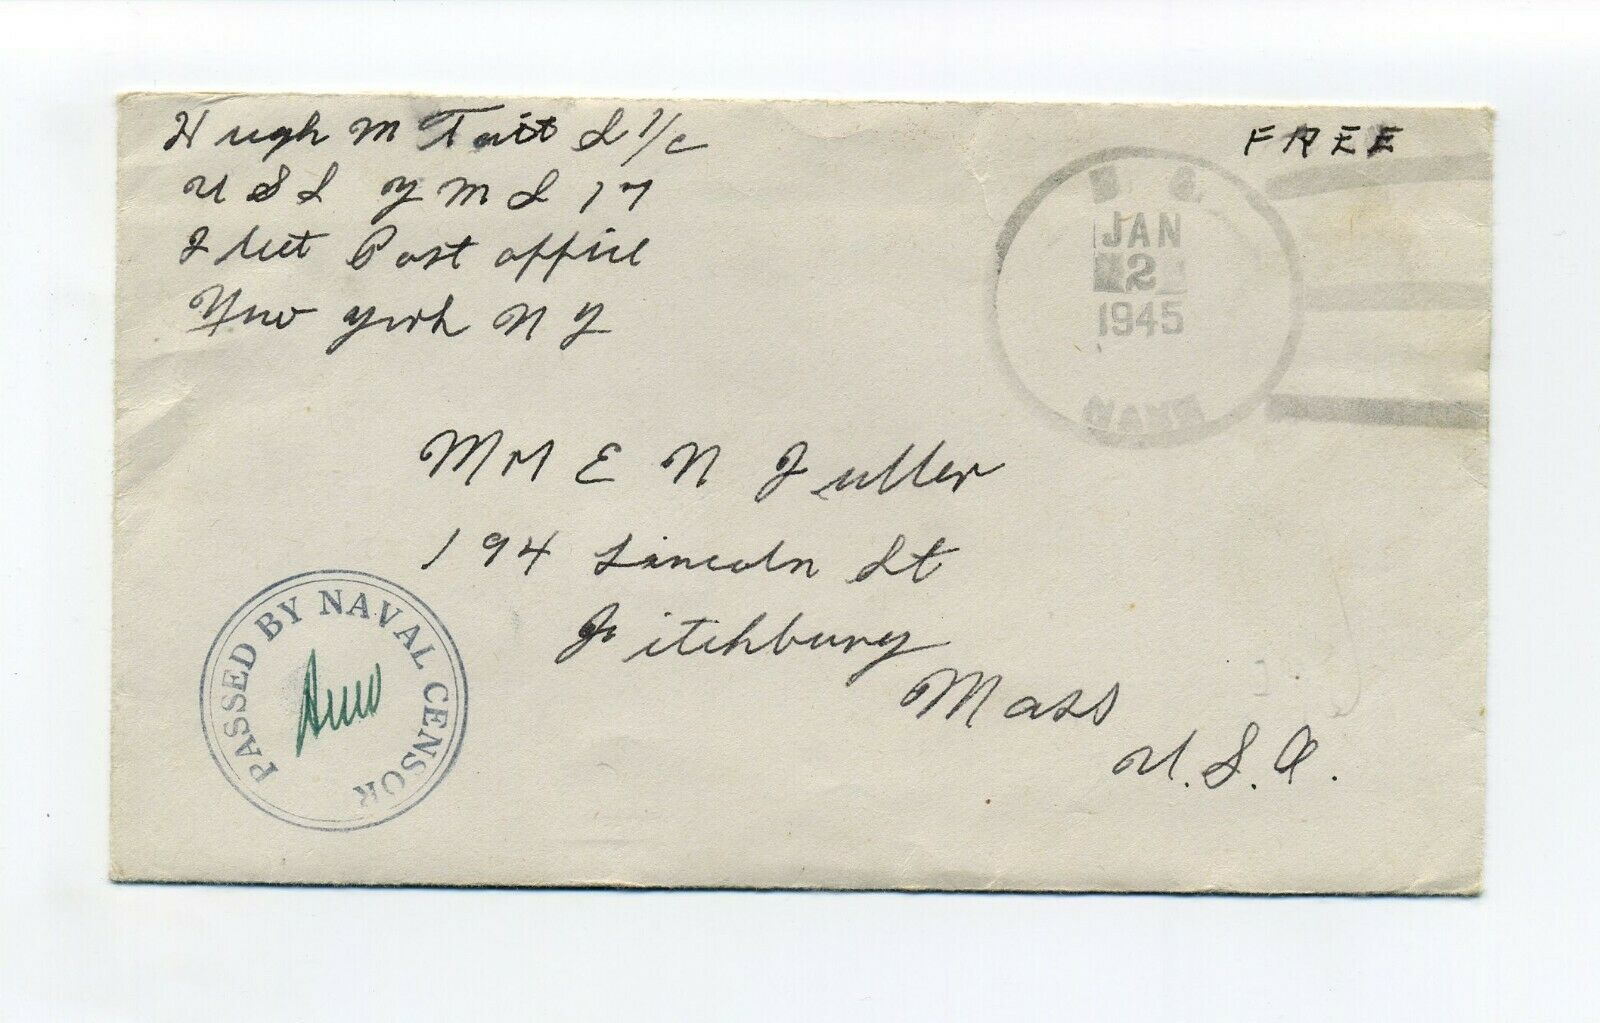 Hugh M Tait S 1/c
U S S Y M S 17
Fleet Post Office
New York N Y
FREE
JAN
2
1945
NAVY
Mrs E N Fuller
194 Lincoln St
Fitchburg
Mass
U.S.A.
PASSED BY NAVAL CENSOR